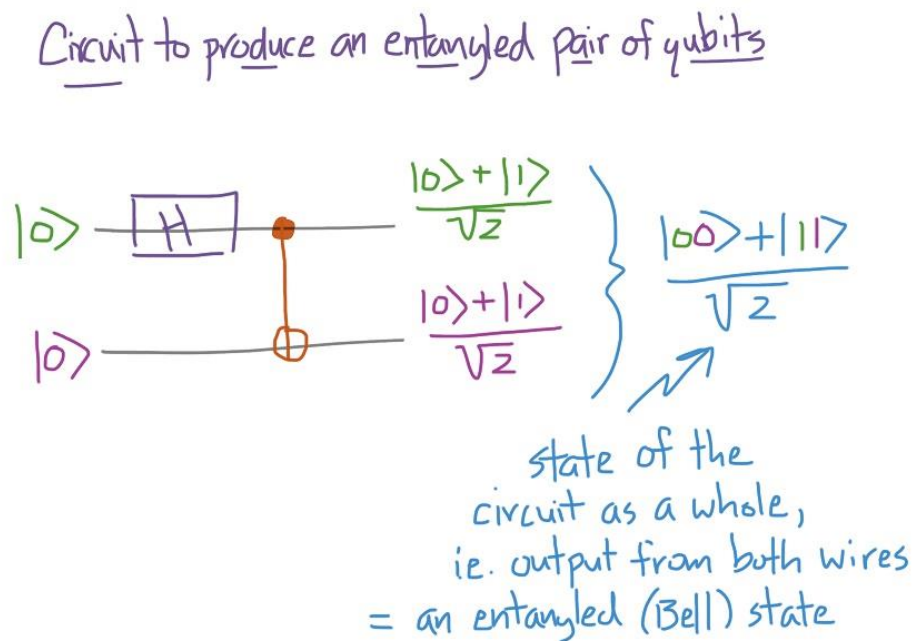 Circuit to produce an entangled pair of qubits
|0⟩ H (|0⟩+|1⟩)/√2
|0⟩ (|0⟩+|1⟩)/√2
(|00⟩+|11⟩)/√2
state of the
circuit as a whole,
ie. output from both wires
= an entangled (Bell) state